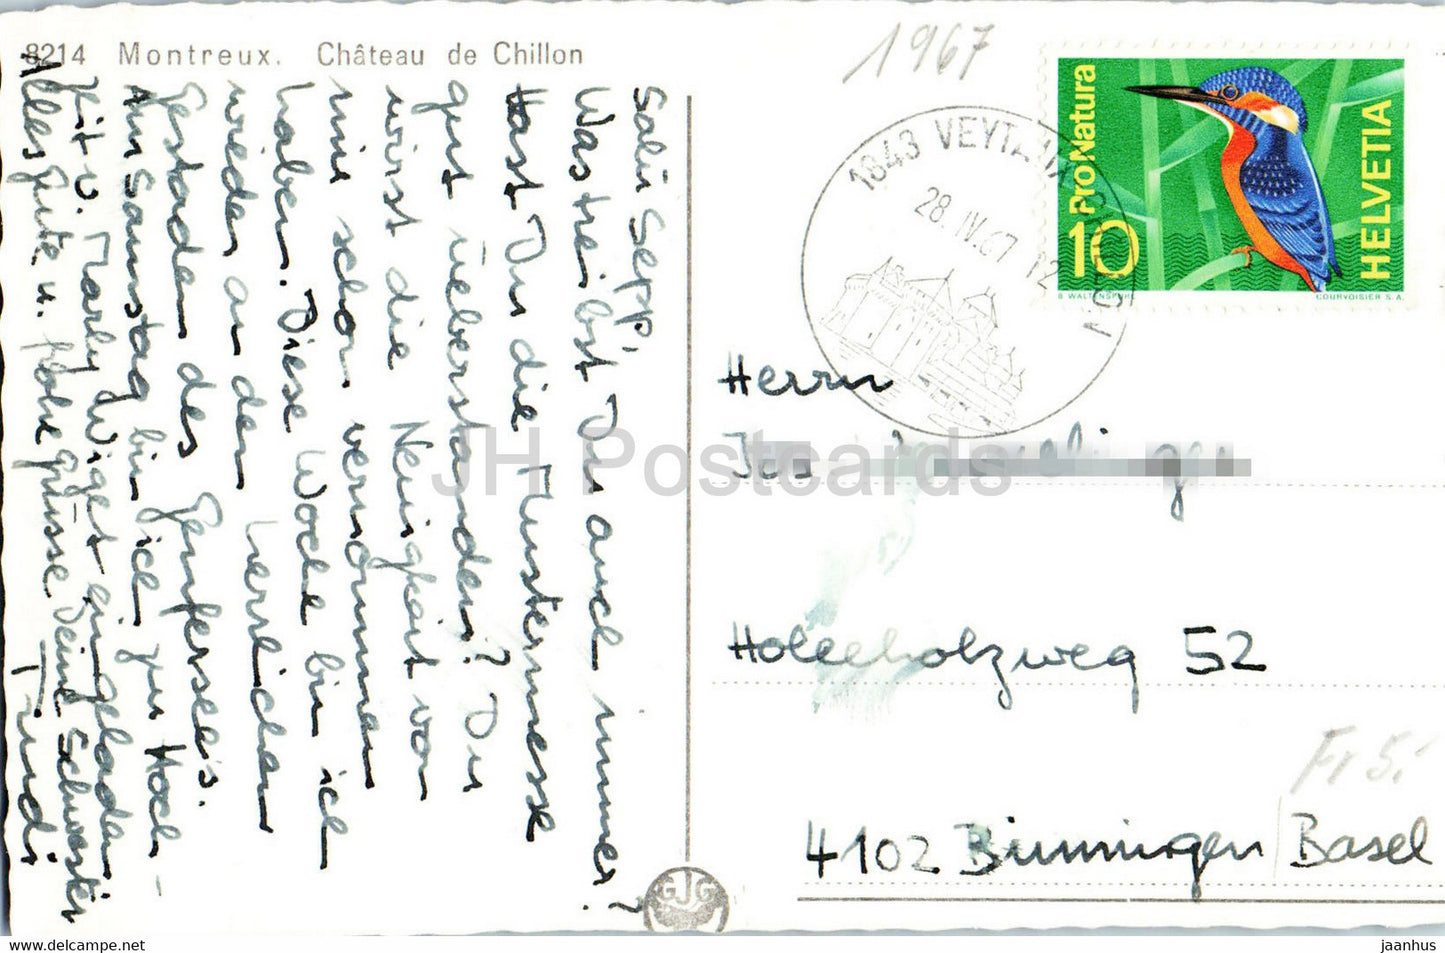 8214 Montreux. Château de Chillon
Salü Sepp,
Was treibst Du auch immer?
Hast Du die Mustermesse
gut überstanden? Du
wirst die Neuigkeit von
mir schon vernommen
haben. Diese Woche bin ich
wieder an den herrlichen
Gestaden des Genfersee's.
Am Samstag bin ich zur Hoch-
zeit v. Marly Wiget eingeladen
Alles Gute u. frohe Grüsse Deine Schwester
Trudi
1967
1843 VEYTAUX
28.IV.67 12
ProNatura
10
HELVETIA
COURVOISIER S.A.
Herrn
Holeeholzweg 52
Fr 5.
4102 Binningen/Basel
GJG
JH Postcards
delcampe.net
jaanhus